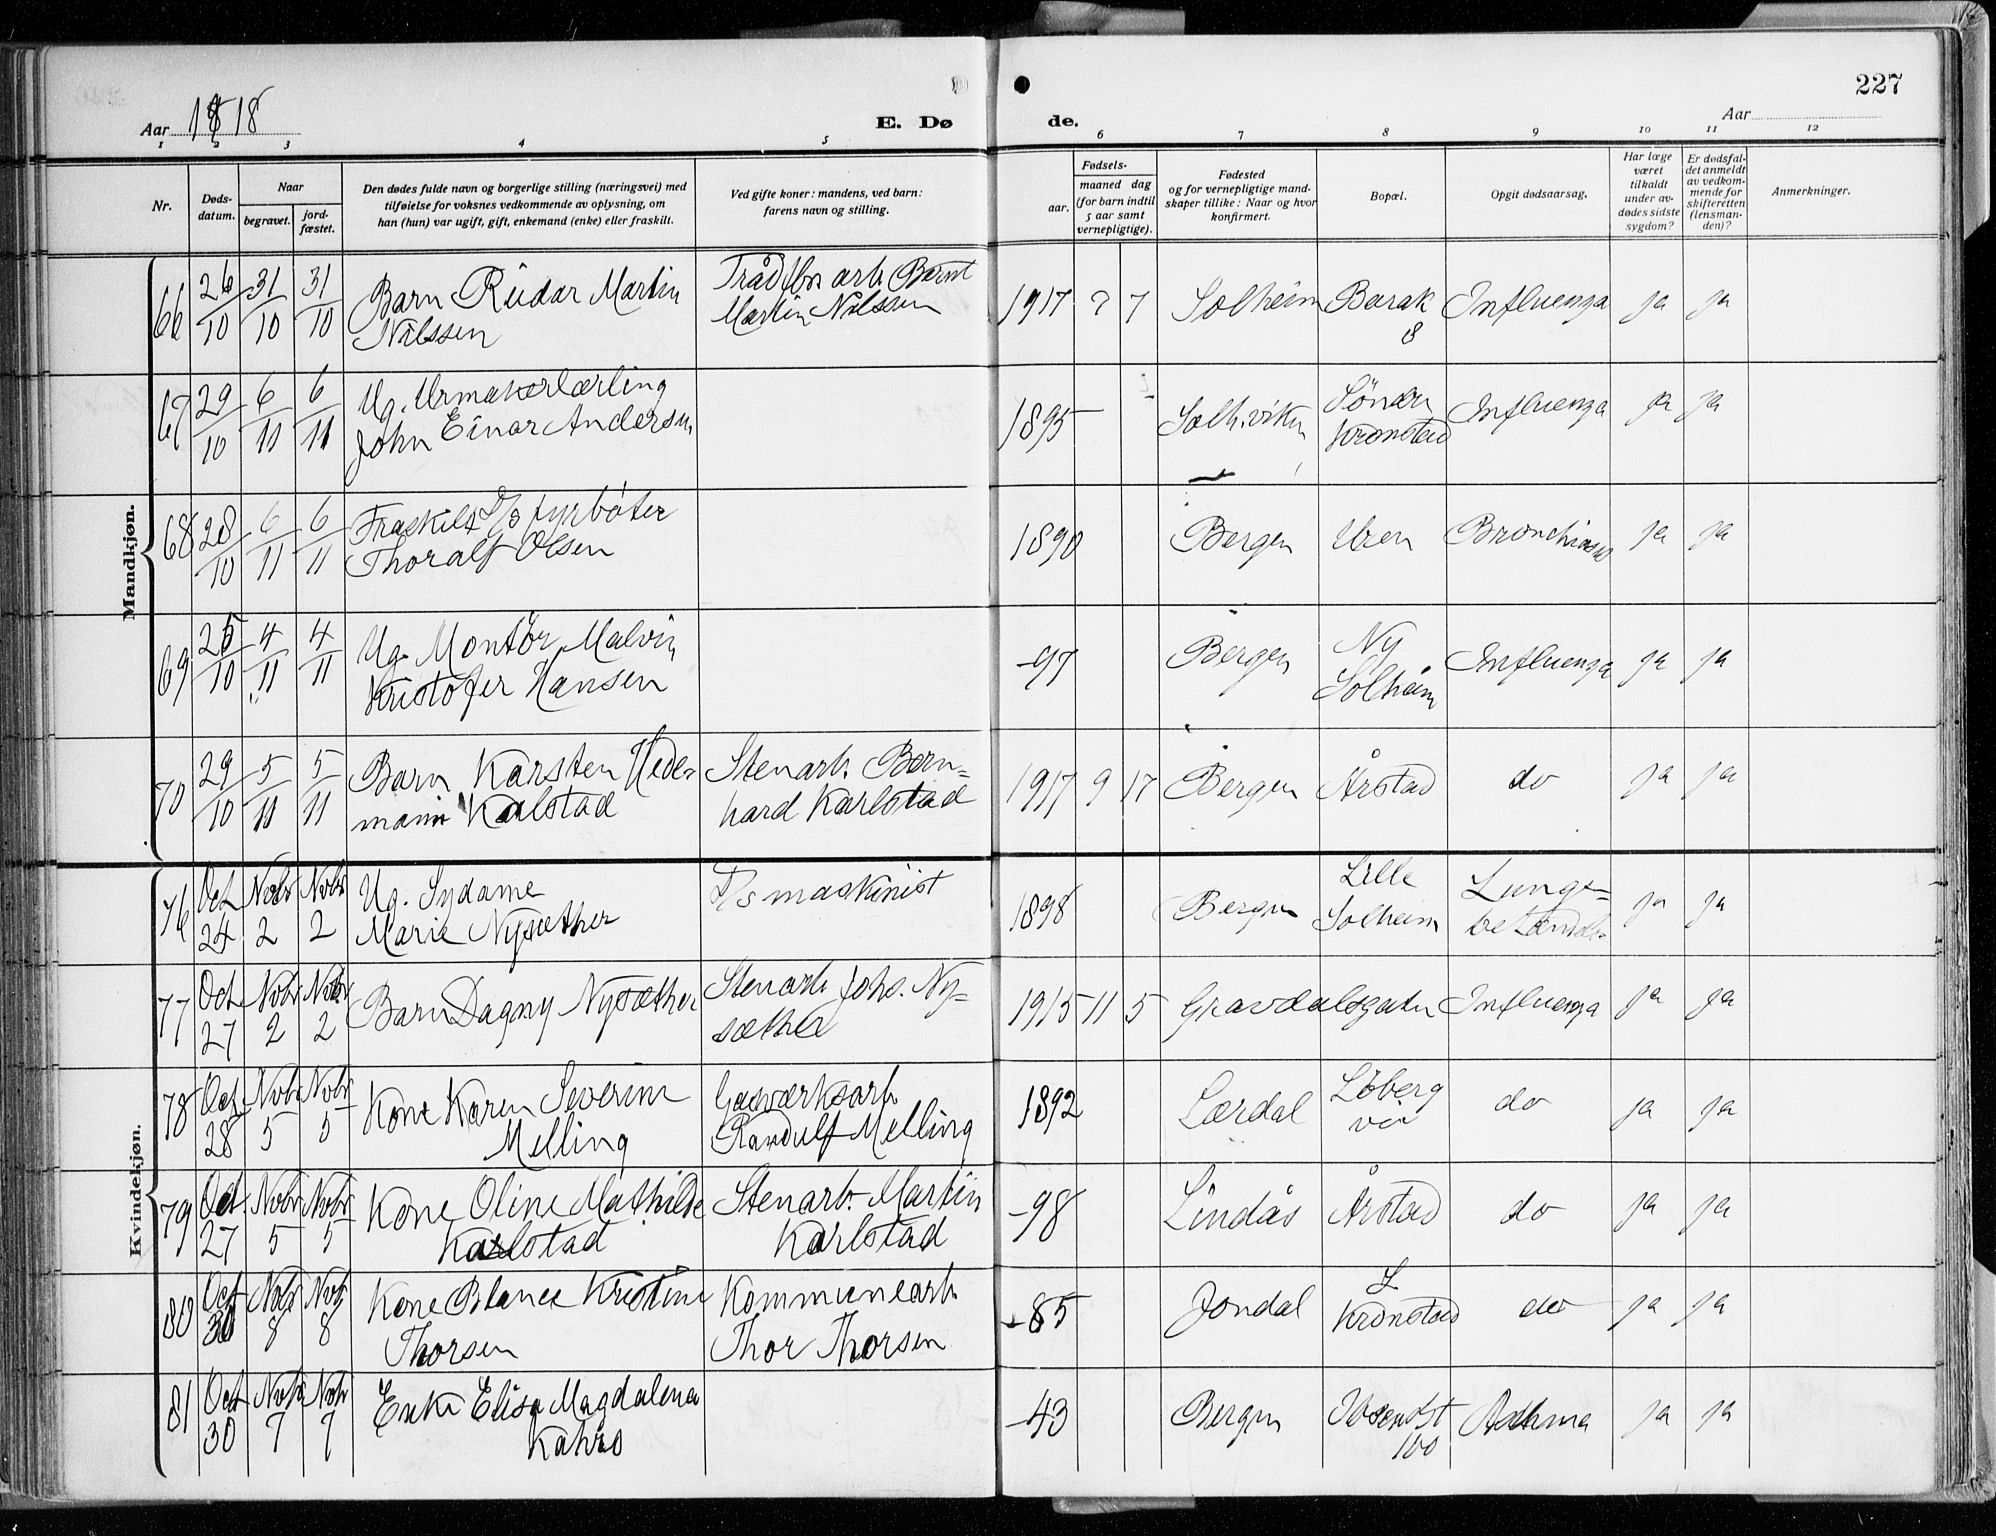 227
Aar 1918
E. Døde.
Aar
1 2 3 4 5 6 7 8 9 10 11 12
Nr.
Døds-
datum.
Naar
begravet.
jord-
fæstet.
Den dødes fulde navn og borgerlige stilling (næringsvei) med
tilføielse for voksnes vedkommende av oplysning, om
han (hun) var ugift, gift, enkemand (enke) eller fraskilt.
Ved gifte koner: mandens, ved barn:
farens navn og stilling.
Fødsels-
aar.
maaned dag
(for barn indtil
5 aar samt
vernepligtige).
Fødested
og for vernepligtige mand-
skaper tillike: Naar og hvor
konfirmert.
Bopæl.
Opgit dødsaarsag.
Har læge
været
tilkaldt
under av-
dødes sidste
sygdom?
Er dødsfal-
det anmeldt
av vedkom-
mende for
skifteretten
(lensman-
den)?
Anmerkninger.
Mandkjøn.
66 26/10 31/10 31/10 Barn Reidar Martin
Nilssen
Trådfbr arb. Bernt
Martin Nilssen
1917 7 Solheim Barak
8
Influenza ja ja
67 29/10 6/11 6/11 Ug. Urmakerlærling
John Einar Andersen
1895 Solh.viken Søndre
Kronstad
Influenza ja ja
68 28/10 6/11 6/11 Fraskilt D/s fyrbøter
Thoralf Olsen
1890 Bergen Uren ja ja
69 25/10 4/11 4/11 Ug. Montør Malvin
Kristofer Hansen
-97 Bergen Ny
Solheim
Influenza ja ja
70 29/10 5/11 5/11 Barn Karsten Hede-
mann Karlstad
Stenarb. Bern-
hard Karlstad
1917 9 17 Bergen Årstad do ja ja
Kvindekjøn.
76 Oct 24 Nobr 2 Nobr 2 Ug. Sydame
Marie Nysæther
D/s maskinist
1898 Bergen Lille
Solheim
Lunge-
betændels
ja ja
77 Oct 27 Nobr 2 Nobr 2 Barn Dagny Nysæther
Stenarb Johs. Ny-
sæther
1915 11 5 Gravdalsgaten Influenza ja ja
78 Oct 28 Nobr 5 Nobr 5 Kone Karen Severine
Melling
Gasværksarb
Randulf Melling
1892 Lærdal Løberg
vei
do ja ja
79 Oct 27 Nobr 5 Nobr 5 Kone Oline Mathilde
Karlstad
Stenarb. Martin
Karlstad
-98 Lindås Årstad do ja ja
80 Oct 30 Nobr 8 Nobr 8 Kone Blanca Kristine
Thorsen
Kommunearb
Thor Thorsen
-85 Jondal L
Kronstad
do ja ja
81 Oct 30 Nobr 7 Nobr 7 Enke Elisa Magdalena
-43 Bergen Ibsensgt
100
Asthma ja ja